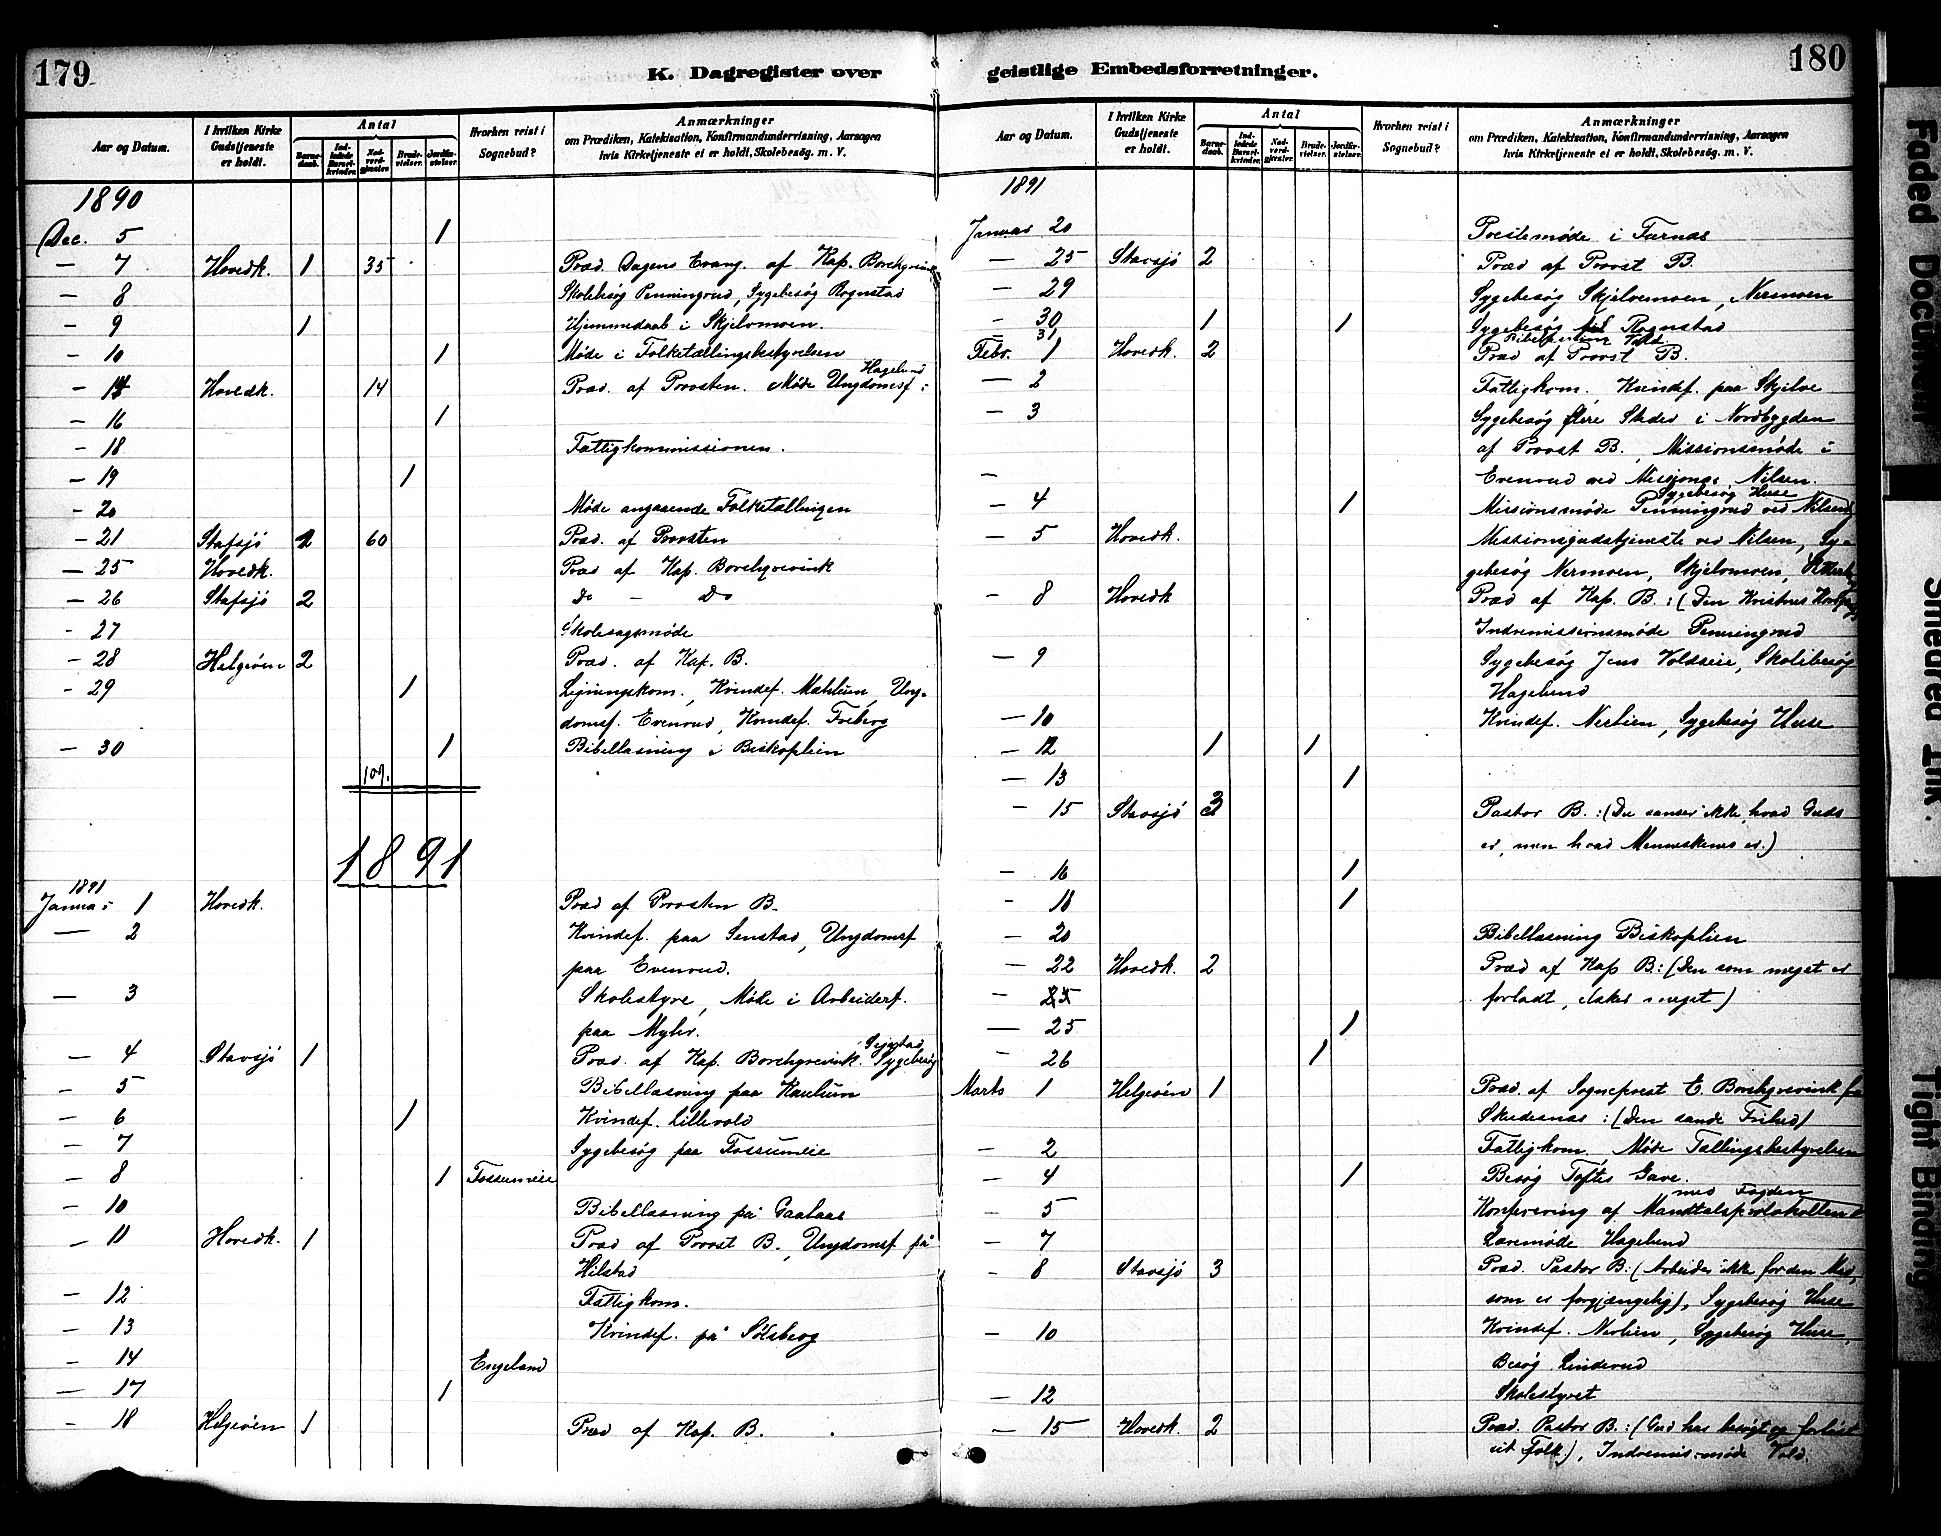 179
K. Dagregister over
Aar og Datum. I hvilken Kirke Gudstjeneste er holdt. Antal Barnedaab. Indledede Barselkvinder. Nadverdgjester. Brudevielser. Jordfæstelser. Hvorhen reist i Sognebud? Anmærkninger om Prædiken, Katekisation, Konfirmandundervisning, Aarsagen hvis Kirketjeneste ei er holdt, Skolebesøg. m. V.
1890
Dec. 5 1
— 7 Hovedk. 1 35 Præd. Dagens Evang. af Kap. Borchgrevink
— 8 Skolebesøg Penningrud, Sygebesøg Rognstad
— 9 1 Hjemmedaab i Skjelvmoen.
— 10 1 Møde i Folketællingsbestyrelsen
— 14 Hovedk. 14 Præd. af Provsten. Møde Ungdomsf: Hagelund
— 16 1
— 18 Fattigkommissionen.
— 19 1
— 20 Møde angaaende Folketællingen
— 21 Stafsjø 2 60 Præd. af Provsten
— 25 Hovedk. Præd af Kap. Borchgrevink
— 26 Stafsjø 2 Do — Do
- 27 Skolesagsmøde
— 28 Helgøen 2 Præd. af Kap. B.
- 29 1 Ligningskom., Kvindef. Mæhlum, Ung-
domsf. Evenrud, Kvindef. Freberg
— 30 1 Bibellæsning i Biskoplien
109.
1891
1891
Januar 1 Hovedk. Præd af Provsten B.
— 2 Kvindef. paa Senstad, Ungdomsf
paa Evenrud.
— 3 Skolestyre, Møde i Arbeiderf.
paa Myhr.
— 4 Stavsjø 1 Præd. af Kap. Borchgrevink. Sygebesøg
— 5 Bibellæsning paa Kaulum
— 6 1 Kvindef. Lillevold
— 7 Sygebesøg paa Fossumeie
— 8 1 Fossumeie
— 10 Bibellæsning på Gaalaas
— 11 Hovedk. 1 Præd af Provst B., Ungdomsf på
Hilstad
— 12 Fattigkom.
— 13 Kvindef. på Solberg
— 14 Engeland
— 17 1
— 18 Helgøen 1 Præd af Kap. B.
180
geistlige Embedsforretninger.
Aar og Datum. I hvilken Kirke Gudstjeneste er holdt. Antal Barnedaab. Indledede Barselkvinder. Nadverdgjester. Brudevielser. Jordfæstelser. Hvorhen reist i Sognebud? Anmærkninger om Prædiken, Katekisation, Konfirmandundervisning, Aarsagen hvis Kirketjeneste ei er holdt, Skolebesøg. m. V.
1891
Januar 20 Prestemøde i Furnæs
— 25 Stavsjø 2 Præd af Provst B.
— 29 Sygebesøg Skjelvemoen, Nermoen
— 30 1 1 Sygebesøg Rognstad
31 Vold
Febr. 1 Hovedk. 2 Præd af Provst B.
— 2 Fattigkom., Kvindef. paa Skjelve
— 3 Sygebesøg flere Steder i Nordbygden
af Provst B., Missionsmøde i
— Evenrud ved Missions. Nilsen.
— 4 1 Missionsmøde Penningrud ved Nilsen, Sygebesøg Huse
— 5 Hovedk. Missionsgudstjeneste ved Nilsen, Sy-
gebesøg Nermoen, Skjelvmoen,
— 8 Hovedk Præd af Kap. B.: (Den Kristnes
Indremissionsmøde Penningrud
— 9 Sygebesøg Jens Voldseie, Skolebesøg
Hagelund
— 10 Kvindef. Nerlien, Sygebesøg Huse
— 12 1 1
— 13 1
— 15 Stavsjø 3 Pastor B.: (Du sanser ikke, hvad Guds
er, men hvad Menneskenes er.)
— 16 1
— 18 1
— 20 Bibellæsning Biskoplien
— 22 Hovedk. 2 Præd af Kap B: (Den som meget er
forladt, elsker meget)
— 25 1
— 26 1
Marts 1 Helgøen 1 Præd. af Sogneprest E. Borchgrevink fra
Skudesnæs: (Den sande Frihed)
— 2 Fattigkom. Møde Tællingsbestyrelsen
— 4 1 Besøg Toftes Gave.
— 5 Konferering af Mandtalsprotokollen med Fogden
— 7 Læremøde Hagelund
— 8 Stavsjø 3 Præd. Pastor B: (Arbeider ikke for den Mad,
som er forgjængelig), Sygebesøg Huse
— 10 Kvindef. Nerlien, Sygebesøg Huse,
Besøg Linderud
— 12 Skolestyret
— 15 Hovedk. 2 Præd. Pastor B.: (Gud har besøgt og forløst
sit Folk), Indremis.møde Vold.
Faded Document
Smeared Ink.
Tight Binding